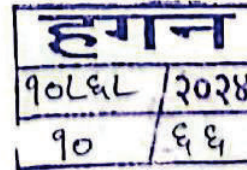 हगन
१०८६८/२०२४
१०/६६